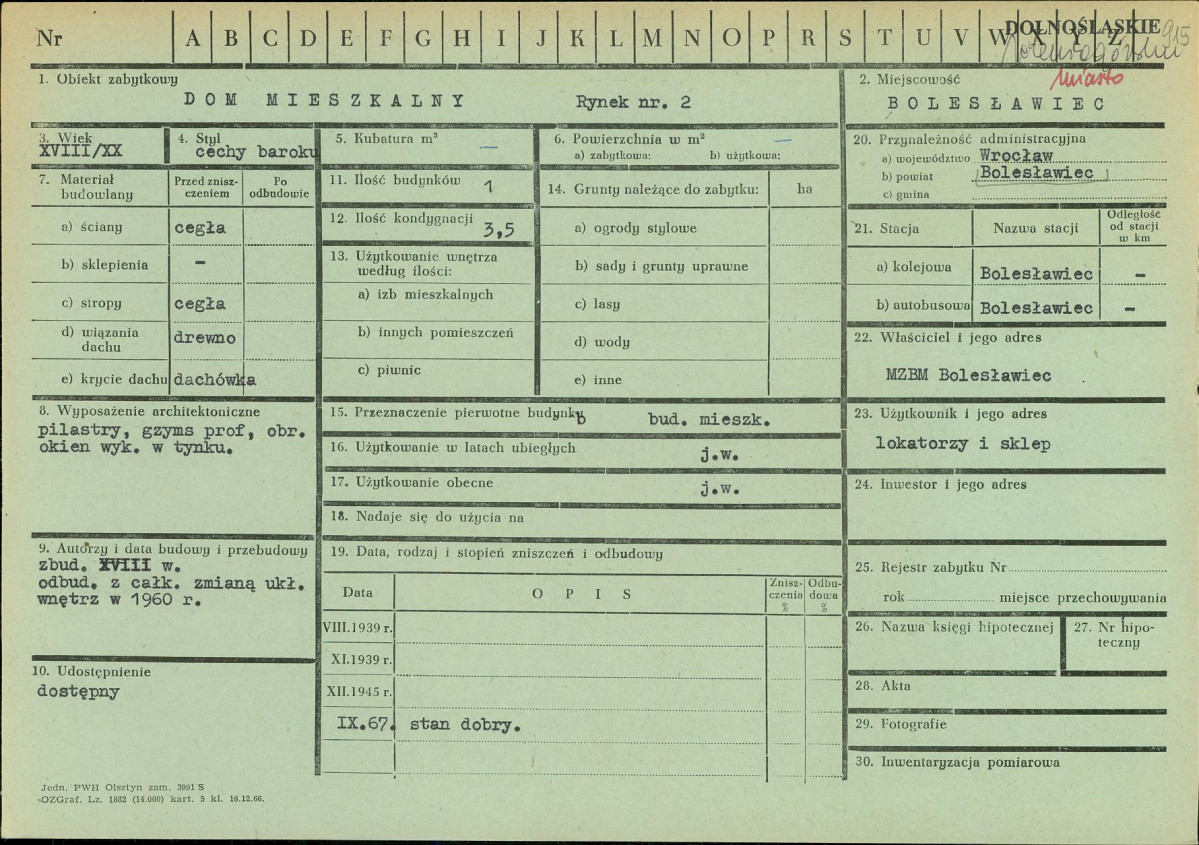 Nr A B C D E F G H I J K L M N O P R S T U V W X Y Z
DOLNOŚLĄSKIE
915
miasto
1. Obiekt zabytkowy
DOM MIESZKALNY Rynek nr. 2
2. Miejscowość
BOLESŁAWIEC
3. Wiek
XVIII/XX
4. Styl
cechy baroku
5. Kubatura m³ —
6. Powierzchnia w m² —
a) zabytkowa: b) użytkowa:
7. Materiał budowlany
Przed znisz-
czeniem
Po
odbudowie
a) ściany cegła
b) sklepienia –
c) stropy cegła
d) wiązania
dachu drewno
e) krycie dachu dachówka
8. Wyposażenie architektoniczne
pilastry, gzyms prof, obr.
okien wyk. w tynku.
9. Autorzy i data budowy i przebudowy
zbud. XVIII w.
odbud. z całk. zmianą ukł.
wnętrz w 1960 r.
10. Udostępnienie
dostępny
11. Ilość budynków 1
12. Ilość kondygnacji 3,5
13. Użytkowanie wnętrza
według ilości:
a) izb mieszkalnych
b) innych pomieszczeń
c) piwnic
14. Grunty należące do zabytku: ha
a) ogrody stylowe
b) sady i grunty uprawne
c) lasy
d) wody
e) inne
15. Przeznaczenie pierwotne budynku bud. mieszk.
16. Użytkowanie w latach ubiegłych j.w.
17. Użytkowanie obecne j.w.
18. Nadaje się do użycia na
19. Data, rodzaj i stopień zniszczeń i odbudowy
Data OPIS
Znisz-
czenia
%
Odbu-
dowa
%
VIII.1939 r.
XI.1939 r.
XII.1945 r.
IX.67. stan dobry.
20. Przynależność administracyjna
a) województwo Wrocław
b) powiat Bolesławiec
c) gmina
21. Stacja Nazwa stacji
Odległość
od stacji
w km
a) kolejowa Bolesławiec –
b) autobusowa Bolesławiec –
22. Właściciel i jego adres
MZBM Bolesławiec
23. Użytkownik i jego adres
lokatorzy i sklep
24. Inwestor i jego adres
25. Rejestr zabytku Nr
rok miejsce przechowywania
26. Nazwa księgi hipotecznej
27. Nr hipo-
teczny
28. Akta
29. Fotografie
30. Inwentaryzacja pomiarowa
Jedn. PWH Olsztyn zam. 3991 S
OZGraf. Lz. 1882 (14.000) kart. 5 kl. 16.12.66.